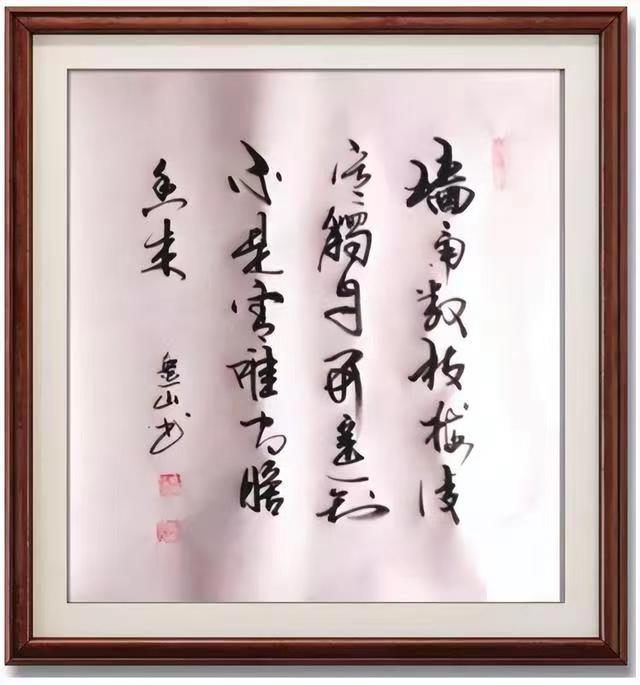 墙角数枝梅凌
寒獨自开遥知
不是雪唯有暗
香来
山书